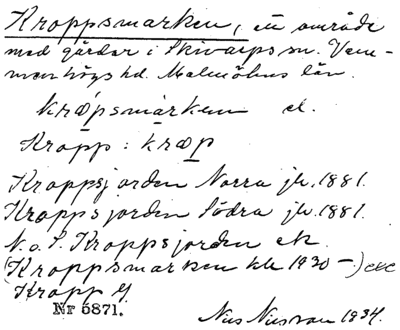 Kroppsmarken, ett område
med gårdar i Skivarps sn. Vem-
menhögs hd. Malmöhus län.
kræpsmarken el.
Kropp: kræp
Kroppsjorden Norra jb. 1881.
Kroppsjorden Södra jb. 1881.
N. o. S. Kroppsjorden ek
(Kroppsmarken kk 1930-)
Kropp
Nr 5871.
1934.